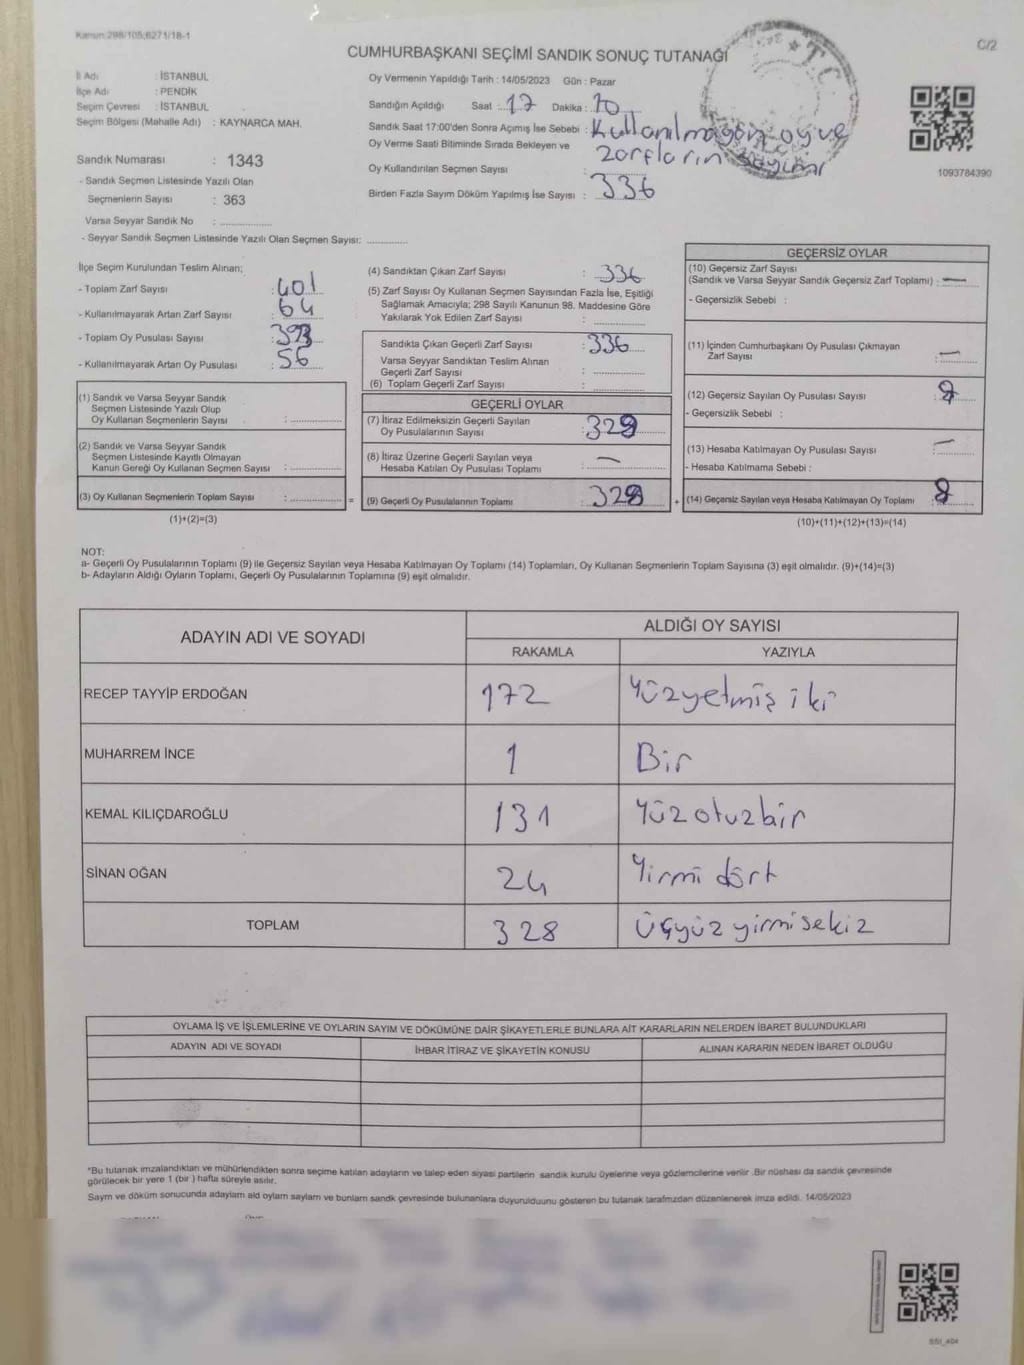 Kanun 298/105,6271/18-1
C/2
CUMHURBAŞKANI SEÇİMİ SANDIK SONUÇ TUTANAĞI
T.C.
İl Adı : İSTANBUL
İlçe Adı : PENDİK
Seçim Çevresi : İSTANBUL
Seçim Bölgesi (Mahalle Adı) : KAYNARCA MAH.
Sandık Numarası : 1343
- Sandık Seçmen Listesinde Yazılı Olan
Seçmenlerin Sayısı : 363
Varsa Seyyar Sandık No :
- Seyyar Sandık Seçmen Listesinde Yazılı Olan Seçmen Sayısı:
Oy Vermenin Yapıldığı Tarih : 14/05/2023 Gün : Pazar
Sandığın Açıldığı Saat : 17 Dakika : 10
Sandık Saat 17:00'den Sonra Açımış İse Sebebi : Kullanılmayan oy ve
zarfların sayımı
Oy Verme Saati Bitiminde Sırada Bekleyen ve
Oy Kullandırılan Seçmen Sayısı :
Birden Fazla Sayım Döküm Yapılmış İse Sayısı : 336
1093784390
İlçe Seçim Kurulundan Teslim Alınan;
- Toplam Zarf Sayısı : 401
- Kullanılmayarak Artan Zarf Sayısı : 64
- Toplam Oy Pusulası Sayısı :
- Kullanılmayarak Artan Oy Pusulası : 56
(1) Sandık ve Varsa Seyyar Sandık
Seçmen Listesinde Yazılı Olup
Oy Kullanan Seçmenlerin Sayısı :
(2) Sandık ve Varsa Seyyar Sandık
Seçmen Listesinde Kayıtlı Olmayan
Kanun Gereği Oy Kullanan Seçmen Sayısı :
(3) Oy Kullanan Seçmenlerin Toplam Sayısı : =
(1)+(2)=(3)
(4) Sandıktan Çıkan Zarf Sayısı : 336
(5) Zarf Sayısı Oy Kullanan Seçmen Sayısından Fazla İse, Eşitliği
Sağlamak Amacıyla; 298 Sayılı Kanunun 98. Maddesine Göre
Yakılarak Yok Edilen Zarf Sayısı :
Sandıkta Çıkan Geçerli Zarf Sayısı : 336
Varsa Seyyar Sandıktan Teslim Alınan
Geçerli Zarf Sayısı :
(6) Toplam Geçerli Zarf Sayısı :
GEÇERLİ OYLAR
(7) İtiraz Edilmeksizin Geçerli Sayılan
Oy Pusulalarının Sayısı : 328
(8) İtiraz Üzerine Geçerli Sayılan veya
Hesaba Katılan Oy Pusulası Toplamı : —
(9) Geçerli Oy Pusulalarının Toplamı : 328 +
GEÇERSİZ OYLAR
(10) Geçersiz Zarf Sayısı
(Sandık ve Varsa Seyyar Sandık Geçersiz Zarf Toplamı) : —
- Geçersizlik Sebebi :
(11) İçinden Cumhurbaşkanı Oy Pusulası Çıkmayan
Zarf Sayısı : —
(12) Geçersiz Sayılan Oy Pusulası Sayısı : 8
- Geçersizlik Sebebi :
(13) Hesaba Katılmayan Oy Pusulası Sayısı : —
- Hesaba Katılmama Sebebi :
(14) Geçersiz Sayılan veya Hesaba Katılmayan Oy Toplamı : 8
(10)+(11)+(12)+(13)=(14)
NOT:
a- Geçerli Oy Pusulalarının Toplamı (9) ile Geçersiz Sayılan veya Hesaba Katılmayan Oy Toplamı (14) Toplamları, Oy Kullanan Seçmenlerin Toplam Sayısına (3) eşit olmalıdır. (9)+(14)=(3)
b- Adayların Aldığı Oyların Toplamı, Geçerli Oy Pusulalarının Toplamına (9) eşit olmalıdır.
ADAYIN ADI VE SOYADI ALDIĞI OY SAYISI
RAKAMLA YAZIYLA
RECEP TAYYİP ERDOĞAN 172 Yüzyetmiş iki
MUHARREM İNCE 1 Bir
KEMAL KILIÇDAROĞLU 131 Yüzotuzbir
SİNAN OĞAN 24 Yirmi dört
TOPLAM 328 Üçyüz yirmisekiz
OYLAMA İŞ VE İŞLEMLERİNE VE OYLARIN SAYIM VE DÖKÜMÜNE DAİR ŞİKAYETLERLE BUNLARA AİT KARARLARIN NELERDEN İBARET BULUNDUKLARI
ADAYIN ADI VE SOYADI İHBAR İTİRAZ VE ŞİKAYETİN KONUSU ALINAN KARARIN NEDEN İBARET OLDUĞU
*Bu tutanak imzalandıktan ve mühürlendikten sonra seçime katılan adayların ve talep eden siyasi partilerin sandık kurulu üyelerine veya gözlemcilerine verilir .Bir nüshası da sandık çevresinde
görülecek bir yere 1 (bir ) hafta süreyle asılır.
Sayım ve döküm sonucunda adaylam ald oylam saylam ve bunlam sandk çevresinde bulunanlara duyurulduunu gösteren bu tutanak tarafmzdan düzenlenerek imza edildi. 14/05/2023